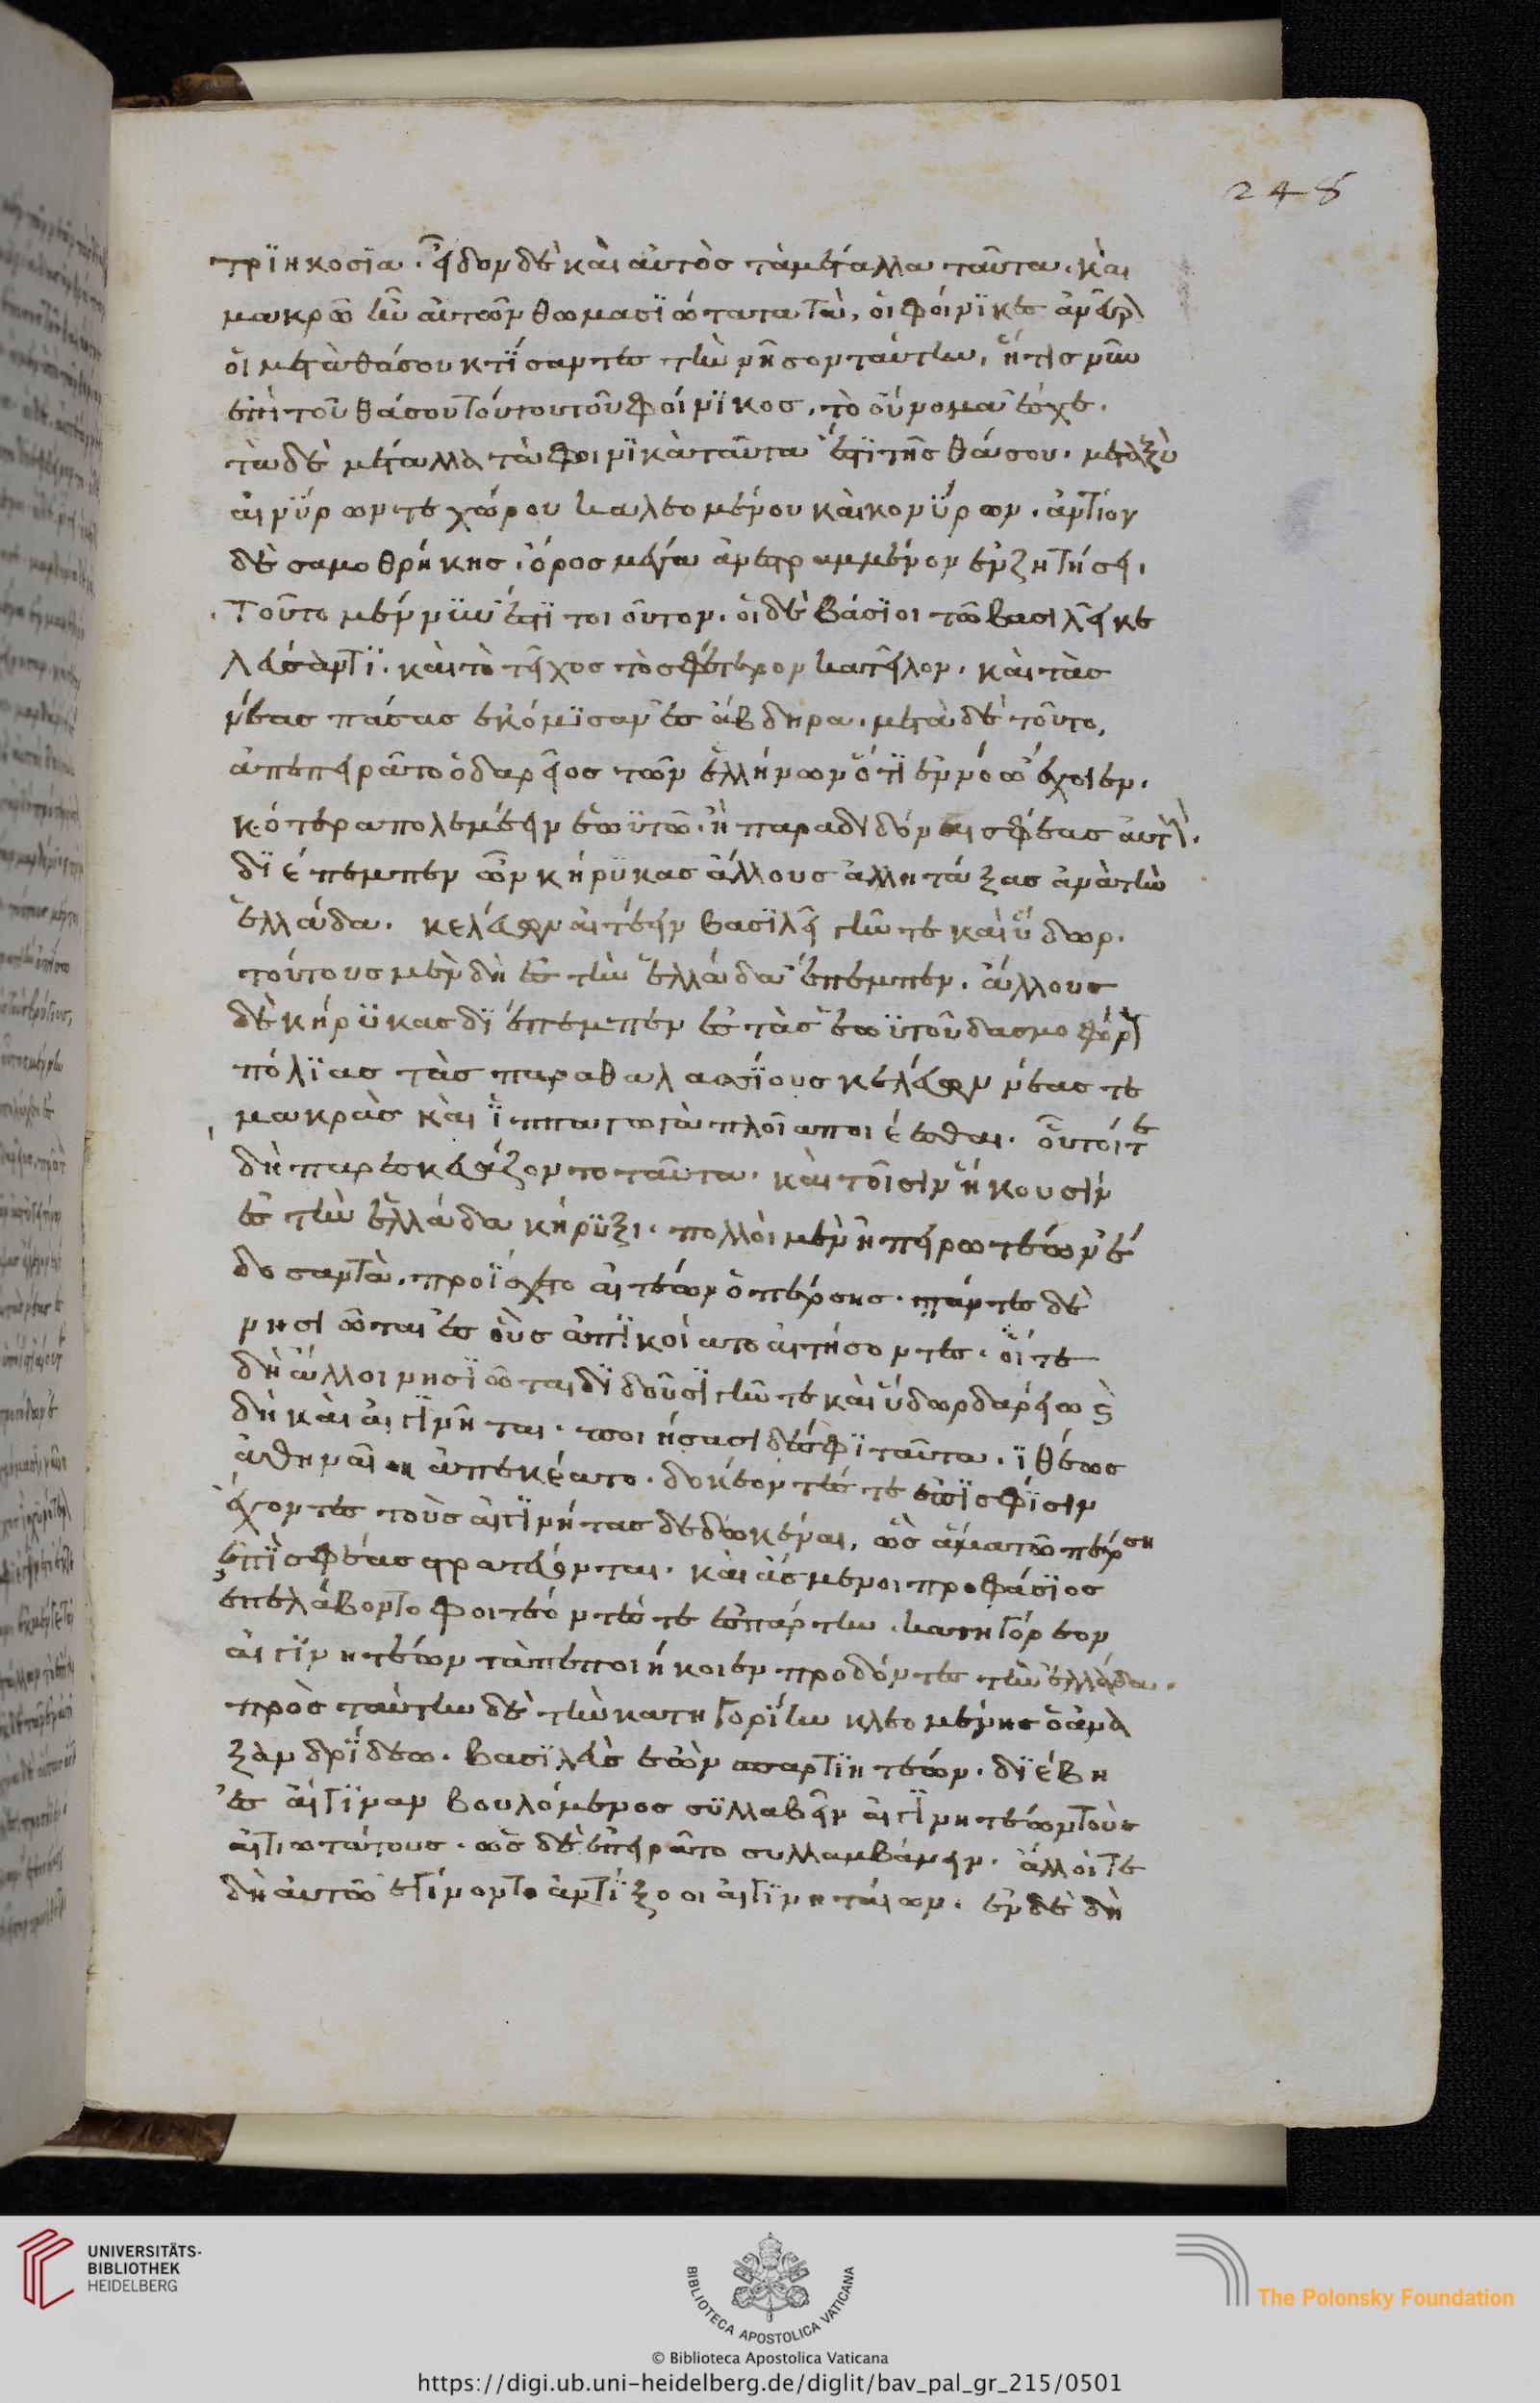 248
τριηκοσια. εἶδον δὲ καὶ αὐτὸσ τὰ μέταλλα ταῦτα. καὶ
μακρῶ ἦν αὐτῶν θωμασιώτατα τὰ, οἱ φοίνικεσ ἀνεῦρον
οἱ μετὰ θάσου κτίσαντεσ τὴν νῆσον ταύτην, ἥτισ νῦν
ἐπὶ τοῦ θάσου τούτου τοῦ φοίνικοσ, τὸ οὔνομα ἔσχε.
τὰ δὲ μέταλλα τὰ φοινικὰ ταῦτα ἐστὶ τῆσ θάσου. μεταξὺ
αἰνύρων τε χώρου καλεομένου καὶ κονύρων. ἀντίον
δὲ σαμοθρήκησ. ὄροσ μέγα ἀνεστραμμένον ἐν ζητήσει.
τοῦτο μέν νυν ἐστὶ τοιοῦτον. οἱ δὲ θάσιοι τῶ βασιλῆι κε
λεύσαντι. καὶ τὸ τεῖχοσ τὸ σφέτερον κατεῖλον. καὶ τὰσ
νέασ πάσασ ἐκόμισαν ἐσ ἄβδηρα. μετὰ δὲ τοῦτο,
ἀπεπειρᾶτο ὁ δαρεῖοσ τῶν ἑλλήνων ὅτι ἐν νόω ἔχοιεν.
κότερα πολεμέειν ἑωυτῶ. ἢ παραδιδόναι σφέασ αὐτούσ.
διέπεμπεν ὦν κήρυκασ ἄλλουσ ἄλλη τάξασ ἀνὰ τὴν
ἑλλάδα. κελεύων αἰτέειν βασιλεῖ γῆν τε καὶ ὕδωρ.
τούτουσ μὲν δὴ ἐσ τὴν ἑλλάδα ἔπεμπεν. ἄλλουσ
δὲ κήρυκασ διέπεμπεν ἐσ τὰσ ἑωυτοῦ δασμοφόρουσ
πόλιασ τὰσ παραθαλασσίουσ κελεύων νέασ τε
μακρὰσ καὶ ἱππαγωγὰ πλοῖα ποιέεσθαι. οὗτοί τε
δὴ παρεσκευάζοντο ταῦτα. καὶ τοῖσιν ἥκουσιν
ἐσ τὴν ἑλλάδα κήρυξι. πολλοὶ μὲν ἠπειρωτέων ἔ
δοσαν τὰ, προΐσχετο αἰτέων ὁ πέρσησ. πάντεσ δὲ
νησιῶται ἐσ οὓσ ἀπικοίατο αἰτήσοντεσ. οἵ τε
δὴ ἄλλοι νησιῶται διδοῦσι γῆν τε καὶ ὕδωρ δαρείω καὶ
δὴ καὶ αἰγινῆται. ποιήσασι δέ σφι ταῦτα. ἰθέωσ
ἀθηναῖοι ἐπεκέατο. δοκέοντέσ τε ἐπὶ σφίσιν
ἔχοντεσ τοὺσ αἰγινήτασ δεδωκέναι, ὡσ ἅμα τῶ πέρση
ἐπὶ σφέασ στρατεύωνται. καὶ ἄσμενοι προφάσιοσ
ἐπελάβοντο φοιτέοντέσ τε ἐσπάρτην. κατηγόρεον
αἰγινητέων τὰ πεποιήκοιεν προδόντεσ τὴν ἑλλάδα.
πρὸσ ταύτην δὲ τὴν κατηγορίην κλεομένησ ὁ ἀνα
ξανδρίδεω. βασιλεὺσ ἐὼν σπαρτιητέων. διέβη
ἐσ αἴγιναν βουλόμενοσ συλλαβεῖν αἰγινητέων τοὺσ
αἰτιωτάτουσ. ὡσ δὲ ἐπειρᾶτο συλλαμβάνειν. ἄλλοι τε
δὴ αὐτῶ ἐγίνοντο ἀντίξοοι αἰγινητάων. ἐν δὲ δὴ
UNIVERSITÄTS-
BIBLIOTHEK
HEIDELBERG
BIBLIOTECA APOSTOLICA VATICANA
The Polonsky Foundation
© Biblioteca Apostolica Vaticana
https://digi.ub.uni-heidelberg.de/diglit/bav_pal_gr_215/0501